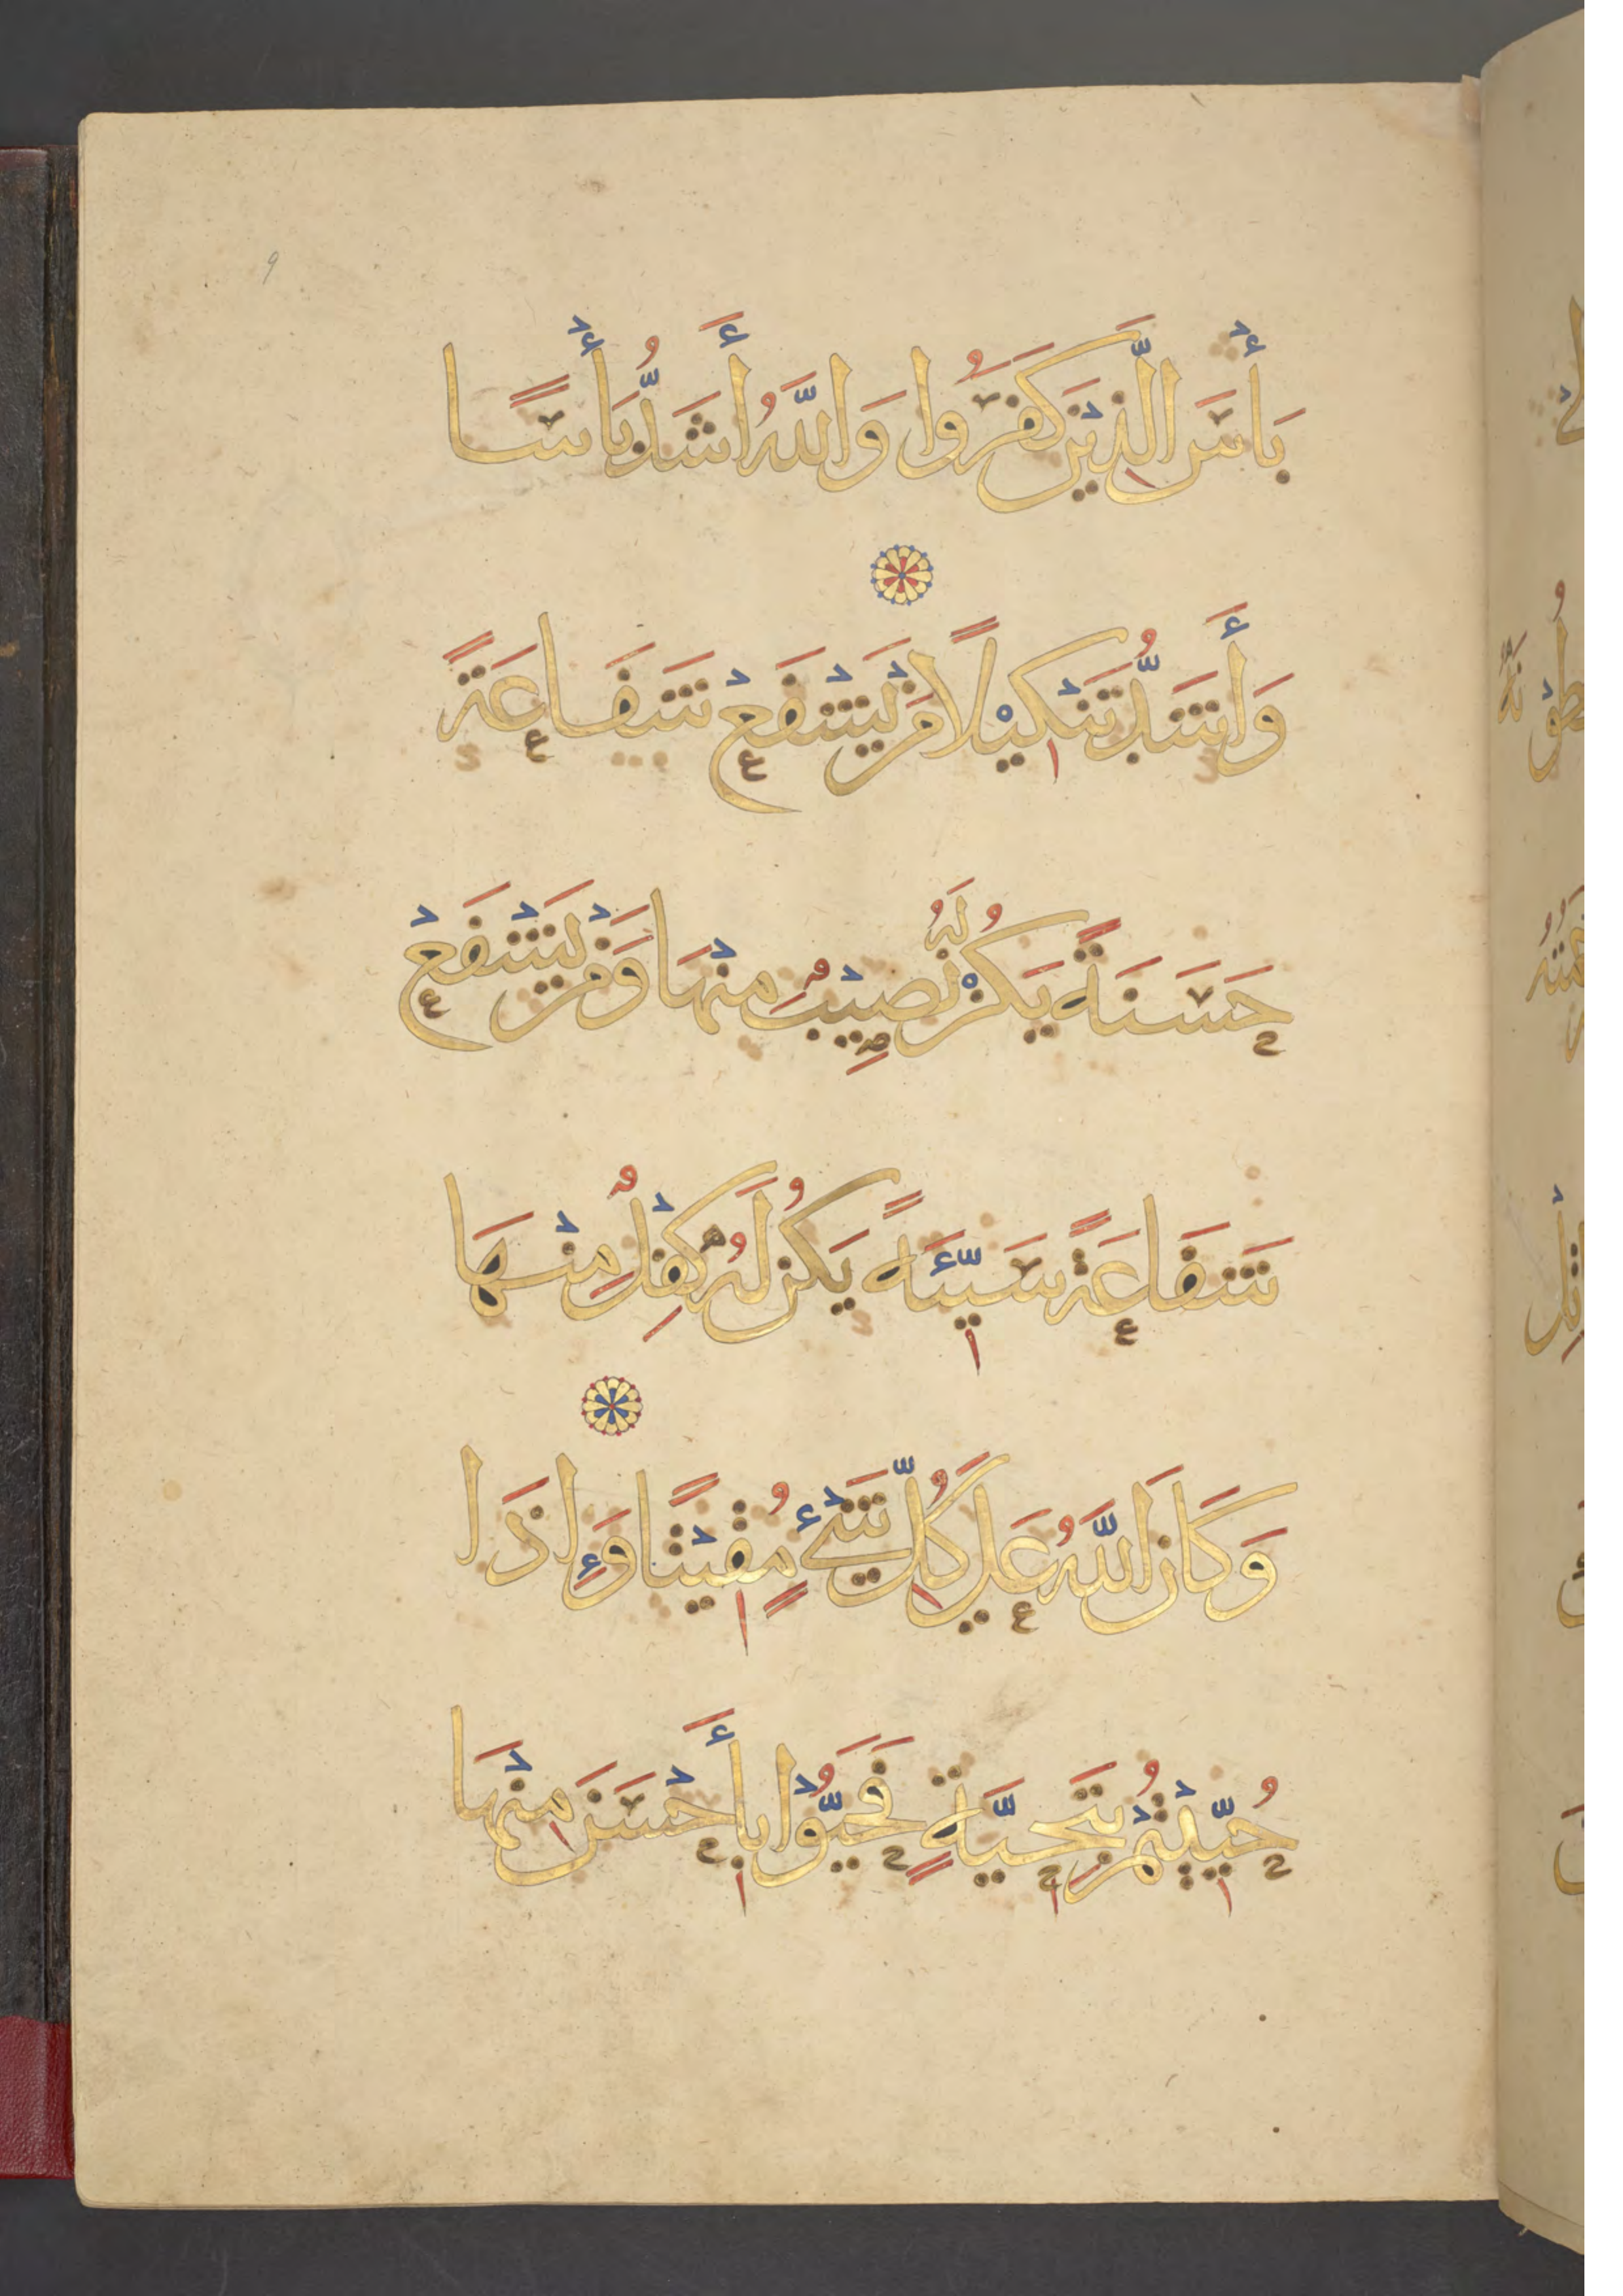 بَأْسَ الَّذِيْنَ كَفَرُوا وَاللَّهُ أَشَدُّ بَأْسًا
وَأَشَدُّ تَنْكِيْلًا مَنْ يَشْفَعْ شَفَاعَةً
حَسَنَةً يَكُنْ لَهُ نَصِيْبٌ مِنْهَا وَمَنْ يَشْفَعْ
شَفَاعَةً سَيِّئَةً يَكُنْ لَهُ كِفْلٌ مِنْهَا
وَكَانَ اللَّهُ عَلَى كُلِّ شَيْءٍ مُقِيْتًا وَإِذَا
حُيِّيْتُمْ بِتَحِيَّةٍ فَحَيُّوْا بِأَحْسَنَ مِنْهَا
9